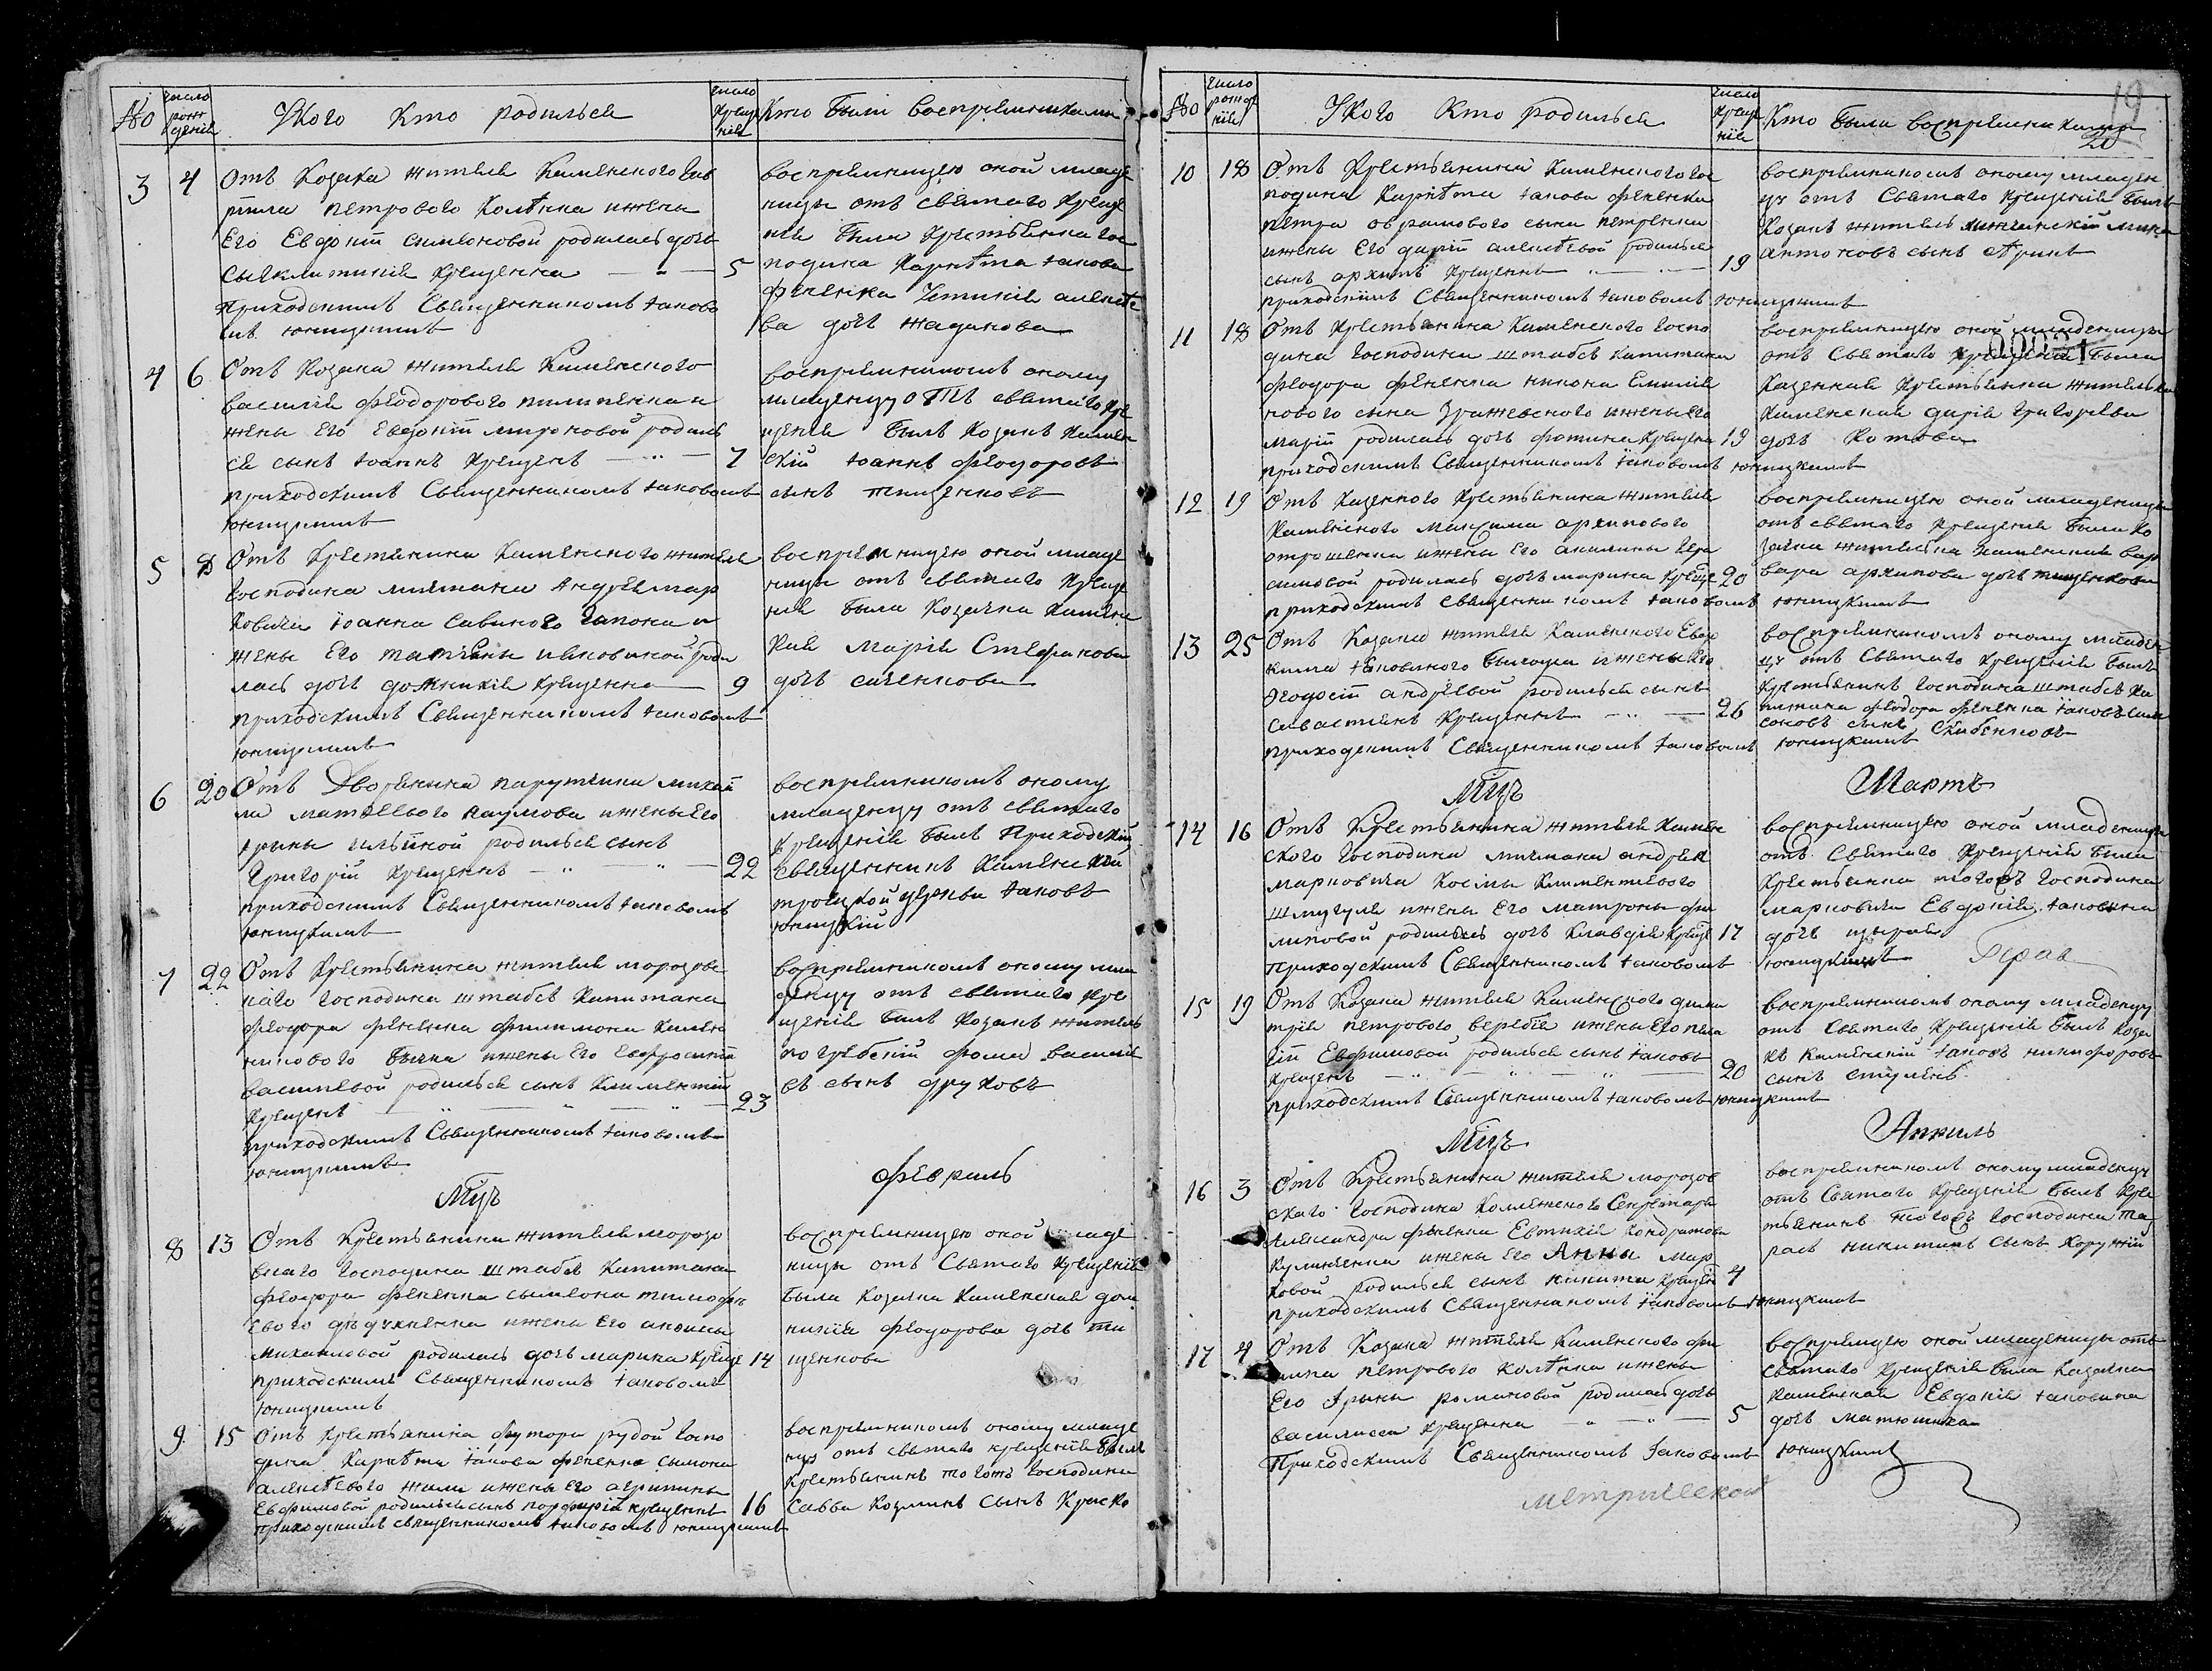 № число рожденія Укого Кто родилься число крещенія Кто были воспреемниками
3 4 Отъ Козака жителя Каменского Гав
рила петрового Колѣнка ижены
Его Евдокіи симеоновой родилась дочь
крещенна 5
приходскимъ Священникомъ Іаково
мъ юницкимъ
воспреемницею оной младе
ницы отъ святаго Креще
нія была крестьянка гос
подина Карпѣта Іакова
фененка алексѣе
ва дочь жадакова
4 6 Отъ Козака жителя Каменского
василія феодорового пилипенка и
жены Его Евдокіи мироновой родил
ся сынъ Іоаннъ Крещенъ 7
приходскимъ Священникомъ Іаковомъ
юницкимъ
воспреемникомъ оному
младенцу отъ святаго кре
щенія былъ Козакъ Камен
скій Іоаннъ феодоровъ
сынъ тищенковъ
5 8 Отъ Крестянина Каменского жителя
Господина мичмана Андрея мар
ковича Іоанна савиного гапона и
жены Его татіаны иаковиной роди
лась дочь домникія крещенна 9
приходскимъ Священникомъ Іаковомъ
юницкимъ
воспреемницею оной младе
ницы отъ святаго Креще
нія была Козачка Камен
кая марія Стефанова
дочь сиченкова
6 20 Отъ Дворянина парутчика михаи
ла матѳеевого наумова ижены его
ирины ильиной родилься сынъ
Григорій Крещенъ 22
приходскимъ Священникомъ Іаковомъ
юницкимъ
воспреемникомъ оному
младенцу отъ святаго
крещенія былъ Приходскій
Священникъ Каменской
троицкой церкви Іаковъ
юницкій
7 22 Отъ Крестьянина жителя морозовс
каго господина штабсъ капитана
феодора фененка филимона Климен
тиевого бычка ижены Его Евфросиніи
васильевой родильса сынъ Климентій
крещенъ 23
приходскимъ Священникомъ Іаковомъ
юницкимъ
воспреемникомъ оному мла
денцу отъ святаго кре
щенія былъ Козакъ житель
погребскій фома василіе
въ сынъ друковъ
Мцъ февраль
8 13 Отъ Крестьянина жителя морозо
вкаго господина штабсъ капитана
феодора фененка сымеона тимофе
евого дедухненка ижены его анисьи
михаиловой родилась дочь марина креще 14
приходскимъ Священникомъ Іаковомъ
юницкимъ
воспреемницею оной младе
ницы отъ Святаго Крещенія
была Козачка Каменская дом
никія феодорова дочь ти
щенкова
9 15 Отъ Крестьянина футора рудой госпо
дина Карпѣта Іакова фененка сымона
алексѣевого жили ижены его агрипины
Евфимовой родильса сынъ порфирій крещенъ 16
приходскимъ священникомъ Іаковомъ юницкимъ
воспреемникомъ оному младе
нцу отъ святаго крещенія былъ
крестьянинъ тогожъ господина
савва козминъ сынъ Краско
№ число рожденія Укого Кто родильса число крещенія Кто были воспреемниками
19
20
00021
10 18 Отъ Крестьянина Каменского гос
подина Карпѣта Іакова фененка
петра аврамового сына петренка
ижены Его даріи алексѣевой родильса
сынъ архипъ Крещенъ 19
приходскимъ Священникомъ Іаковомъ юницкимъ
воспреемникомъ оному младен
цу отъ Святаго Крещенія былъ
Козакъ житель
антоновъ сынъ
11 18 Отъ Крестьянина Каменского госпо
дина Господина штабсъ капитана
феодора фененка никона Емилія
нового сына Зражевского ижены его
маріи родилась дочь фотина крещена 19
приходскимъ Священникомъ Іаковомъ юницкимъ
воспреемницею оной младеницы
отъ Святаго крещенія была
Казенная Крестьянка жителька
Каменская дарія григорева
дочь Котова
12 19 Отъ Казенного Крестьянина жителя
Каменского максима архипового
отрошенка ижены Его акилины гера
симовой родилась дочь марина креще 20
приходскимъ священникомъ Іаковомъ юницкимъ
воспреемницею оной младеницы
отъ святаго крещенія была Ко
зачка жителька каменская вар
вара архипова дочь тищенкова
13 25 Отъ Козака жителя Каменского Евдо
кима Іаковиного ижены его
феодосіи андреевой родильса сынъ
севастіянъ Крещенъ 26
приходскимъ Священникомъ Іаковомъ юницкимъ
воспреемникомъ оному младен
цу отъ Святаго Крещенія былъ
Крестьянинъ Господина штабсъ ка
питана феодора фененка Іаковъ сам
соновъ сынъ Скибенковъ
Мцъ Мартъ
14 16 Отъ Крестьянина жителя Камен
ского Господина мичмана андрея
марковича Козмы Климентиевого
шмугуля ижены Его матроны фи
липовой родилась дочь Клавдія креще 17
приходскимъ Священникомъ Іаковомъ юницкимъ
воспреемницею оной младеницы
отъ Святаго Крещенія была
Крестьянка тогожъ Господина
марковича Евдокія Іаковина
дочь
15 19 Отъ Козака жителя Каменского дими
трія петрового веребія ижены его пела
гіи Евфимовой родильса сынъ Іаковъ
Крещенъ 20
приходскимъ Священникомъ Іаковомъ юницкимъ
воспреемникомъ оному младенцу
отъ Святаго Крещенія былъ Коза
къ Каменскій Іаковъ никифоровъ
сынъ
Мцъ Апрыль
16 3 Отъ Крестьянина жителя морозов
скаго Господина Коллежского Секретара
Александра фененка Евтихія Кондратова
ижены Его Анны мар
ковой родильса сынъ никита Крещен 4
приходскимъ Священникомъ Іаковомъ юницкимъ
воспреемникомъ оному младенцу
отъ Святаго Крещенія былъ Кре
стьянинъ тогожъ Господина та
расъ никитинъ сынъ Коружій
17 4 Отъ Козака жителя Каменского фи
липа петрового Колѣнка ижены
Его Ирины романовой родилась дочь
василисса Крещенна 5
Приходскимъ Священникомъ Іаковомъ юницкимъ
воспреемницею оной младеницы отъ
святаго Крещенія была Казачка
Каменская Евдокія Іаковина
дочь матюшина
метрической